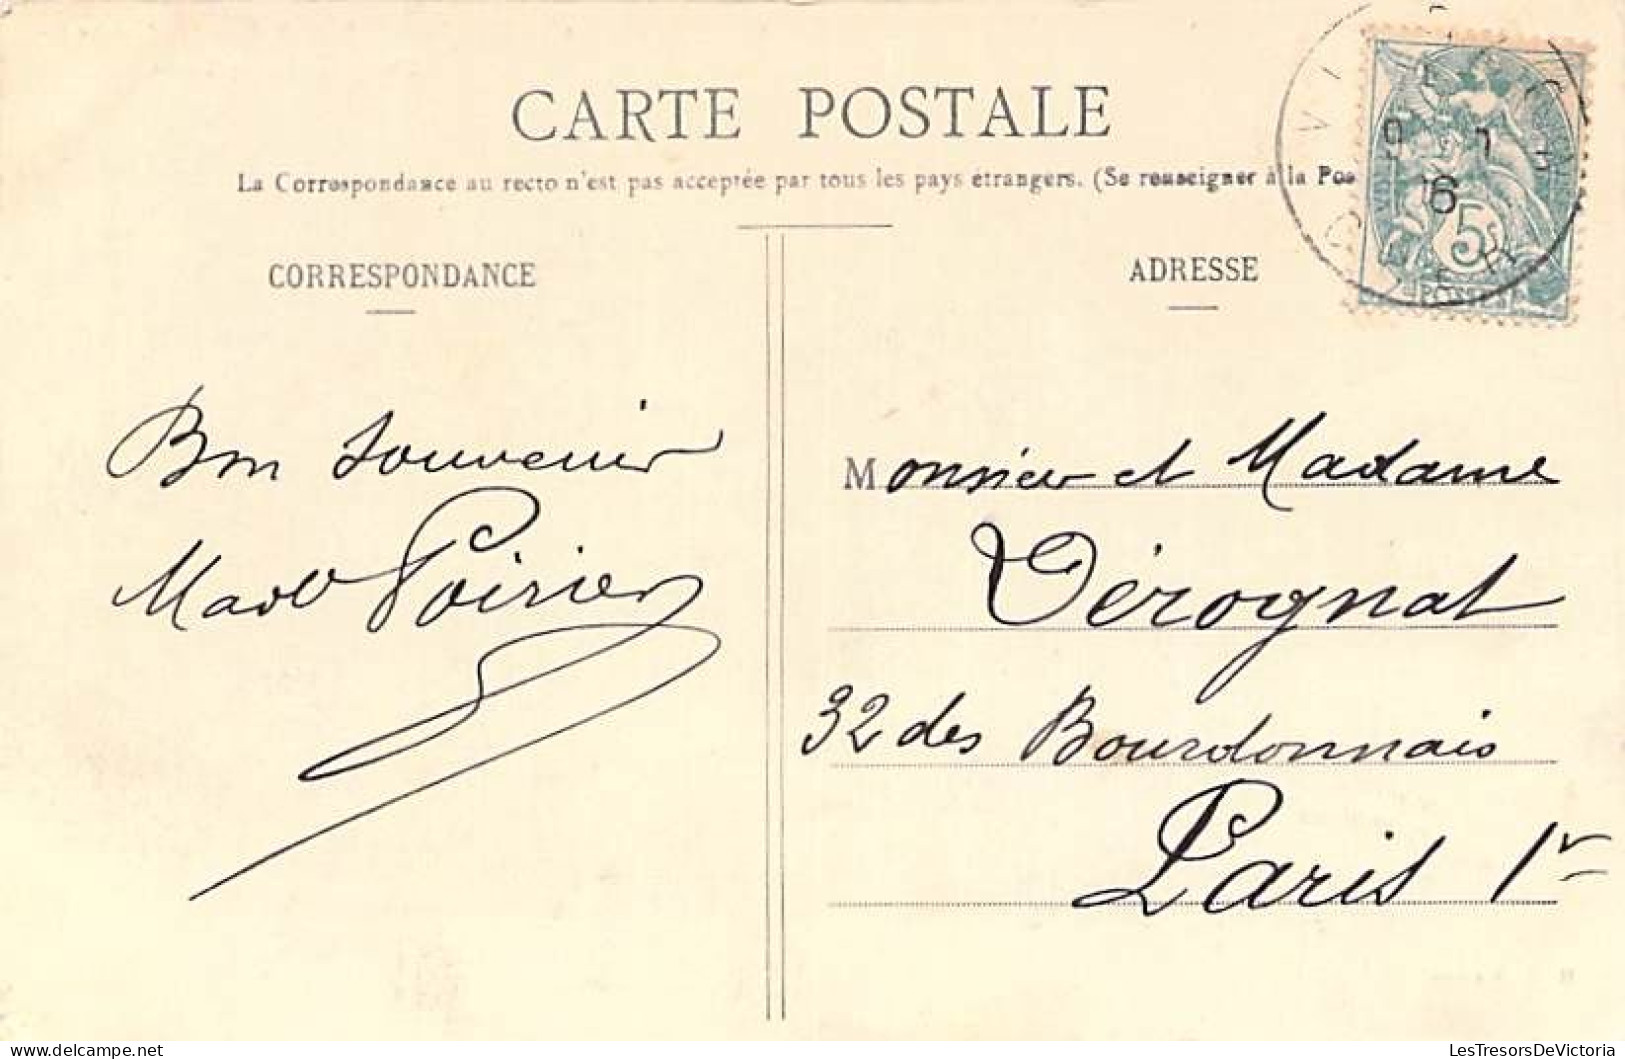 CARTE POSTALE
La Correspondance au recto n'est pas acceptée par tous les pays étrangers. (Se renseigner à la Pos
CORRESPONDANCE
ADRESSE
5c
POSTES
Bon souvenir
Poirier
Monsieur et Madame
Dérognat
32 des Bourdonnais
Paris 1r
LesTresorsDeVictoria
https://www.delcampe.net